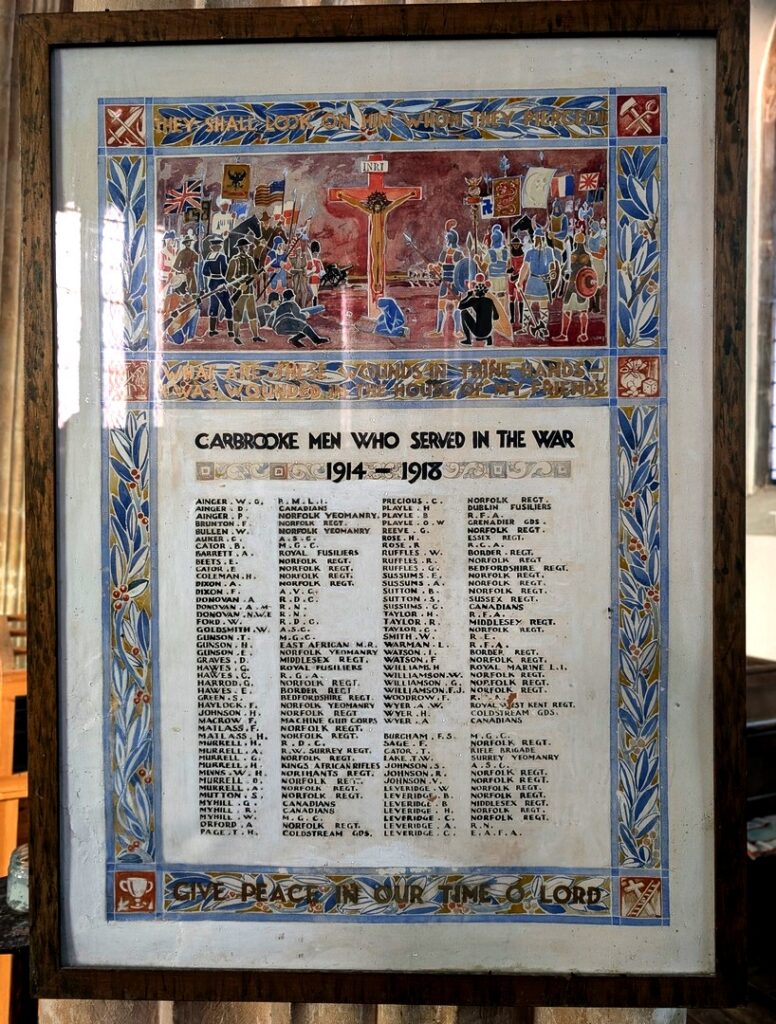 THEY SHALL LOOK ON HIM WHOM THEY PIERCED
INRI
WHAT ARE THESE WOUNDS IN THINE HANDS —
I WAS WOUNDED IN THE HOUSE OF MY FRIENDS
CARBROOKE MEN WHO SERVED IN THE WAR
1914 — 1918
AINGER . W . G . R . M . L . I .
AINGER . D . CANADIANS
AINGER . P . NORFOLK YEOMANRY.
BRUNTON . F . NORFOLK REGT.
BULLEN . W . NORFOLK YEOMANRY
AUKER . C . A . S . C .
CATOR . B . M . G . C .
BARRETT . A . ROYAL FUSILIERS
BEETS . E . NORFOLK REGT.
CATOR . E NORFOLK REGT.
COLEMAN . H . NORFOLK REGT.
DIXON . A . NORFOLK REGT.
DIXON . F . A . V . C .
DONOVAN . A R . D . C .
DONOVAN . A . M . R . N .
DONOVAN . N.W.E R . N .
FORD . W . R . D . C .
GOLDSMITH . W . A . S . C .
GUNSON . T . M . G . C .
GUNSON . H . EAST AFRICAN M . R .
GUNSON . E . NORFOLK YEOMANRY
GRAVES . D . MIDDLESEX REGT.
HAWES . G . ROYAL FUSILIERS
HAWES . C . R . G . A .
HARROD . G . NORFOLK REGT.
HAWES . E . BORDER REGT
GREEN . S . BEDFORDSHIRE REGT.
HAYLOCK . F . NORFOLK YEOMANRY
JOHNSON . H . NORFOLK REGT
MACROW . F . MACHINE GUN CORPS
MATLASS . F . NORFOLK REGT.
MATLASS . H . NORFOLK REGT.
MURRELL . H . R . D . C .
MURRELL . A . R.W. SURREY REGT.
MURRELL . G . NORFOLK REGT.
MURRELL . H . KINGS AFRICAN RIFLES
MINNS . W . H . NORTHANTS REGT.
MURRELL . D . NORFOLK REGT.
MURRELL . A . NORFOLK REGT.
MUTTON . S . NORFOLK REGT.
MYHILL . G . CANADIANS
MYHILL . R . CANADIANS
MYHILL . W . M . G . C .
ORFORD . A NORFOLK REGT.
PAGE . T . H . COLDSTREAM GDS.
PRECIOUS . C . NORFOLK REGT.
PLAYLE . H DUBLIN FUSILIERS
PLAYLE . B R . F . A .
PLAYLE . O . W GRENADIER GDS.
REEVE . G . NORFOLK REGT.
ROSE . H . ESSEX REGT.
ROSE . R R . G . A .
RUFFLES . W . BORDER REGT.
RUFFLES . R . NORFOLK REGT
RUFFLES . G . BEDFORDSHIRE REGT.
SUSSUMS . E . NORFOLK REGT.
SUSSUMS . A . NORFOLK REGT.
SUTTON . B . NORFOLK REGT.
SUTTON . S . SUSSEX REGT.
SUSSUMS . G . CANADIANS
TAYLOR . H . R . F . A .
TAYLOR . R . MIDDLESEX REGT.
TAYLOR . C . NORFOLK REGT.
SMITH . W . R . E .
WARMAN . L . R . F . A .
WATSON . I . BORDER REGT.
WATSON . F NORFOLK REGT.
WILLIAMS . H ROYAL MARINE L . I .
WILLIAMSON . W . NORFOLK REGT.
WILLIAMSON . G . NORFOLK REGT.
WILLIAMSON . F . J . NORFOLK REGT.
WOODROW . F .
WYER . A . W . ROYAL WEST KENT REGT.
WYER . H . COLDSTREAM GDS.
WYER . A CANADIANS
BURCHAM . F . S M . G . C .
SAGE . F . NORFOLK REGT.
CATOR . T . RIFLE BRIGADE
LAKE . T.W . SURREY YEOMANRY
JOHNSON . S . A . S . C .
JOHNSON . R . NORFOLK REGT.
JOHNSON . V . NORFOLK REGT.
LEVERIDGE . W . NORFOLK REGT.
LEVERIDGE . B . NORFOLK REGT.
LEVERIDGE . B MIDDLESEX REGT.
LEVERIDGE . H . NORFOLK REGT.
LEVERIDGE . C . NORFOLK REGT.
LEVERIDGE . A R . N .
LEVERIDGE . C . E . A . F . A .
GIVE PEACE IN OUR TIME O LORD